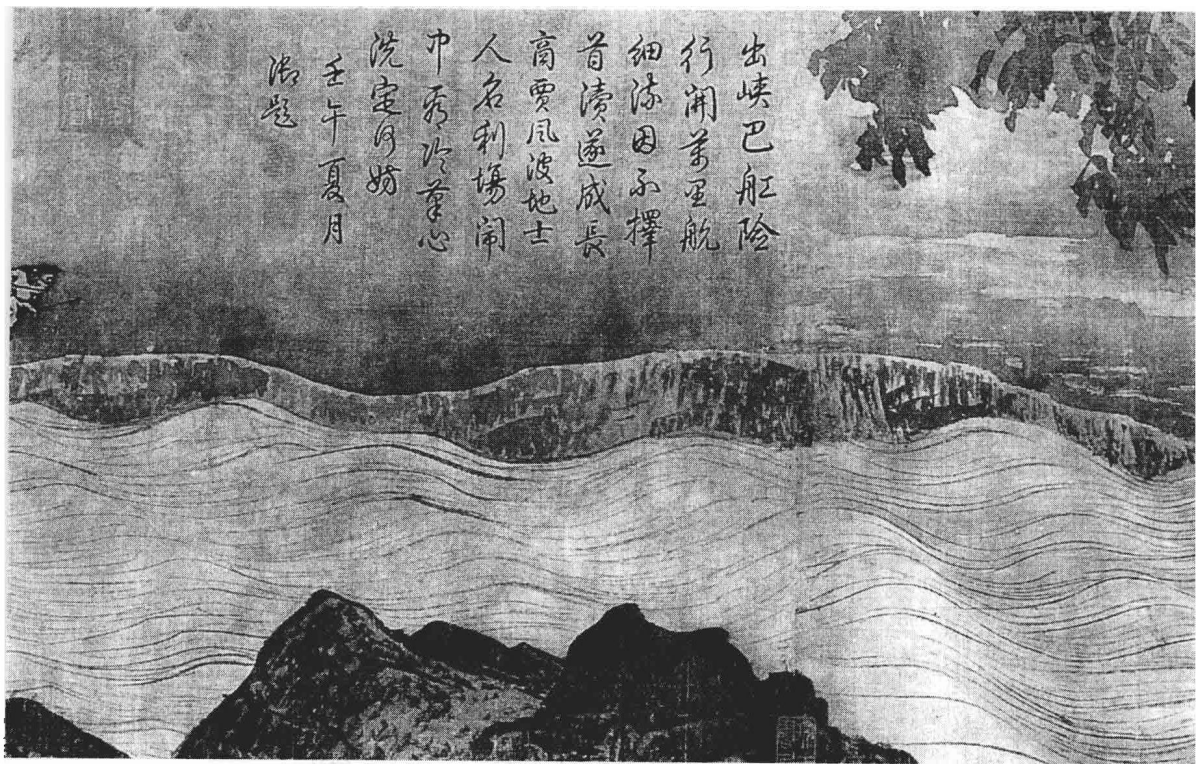 出峽巴舡險
行開萬里航
細流因不擇
首瀆遂成長
商賈風波地士
人名利場鬧
中看冷心
洗定何妨
壬午夏月
御題